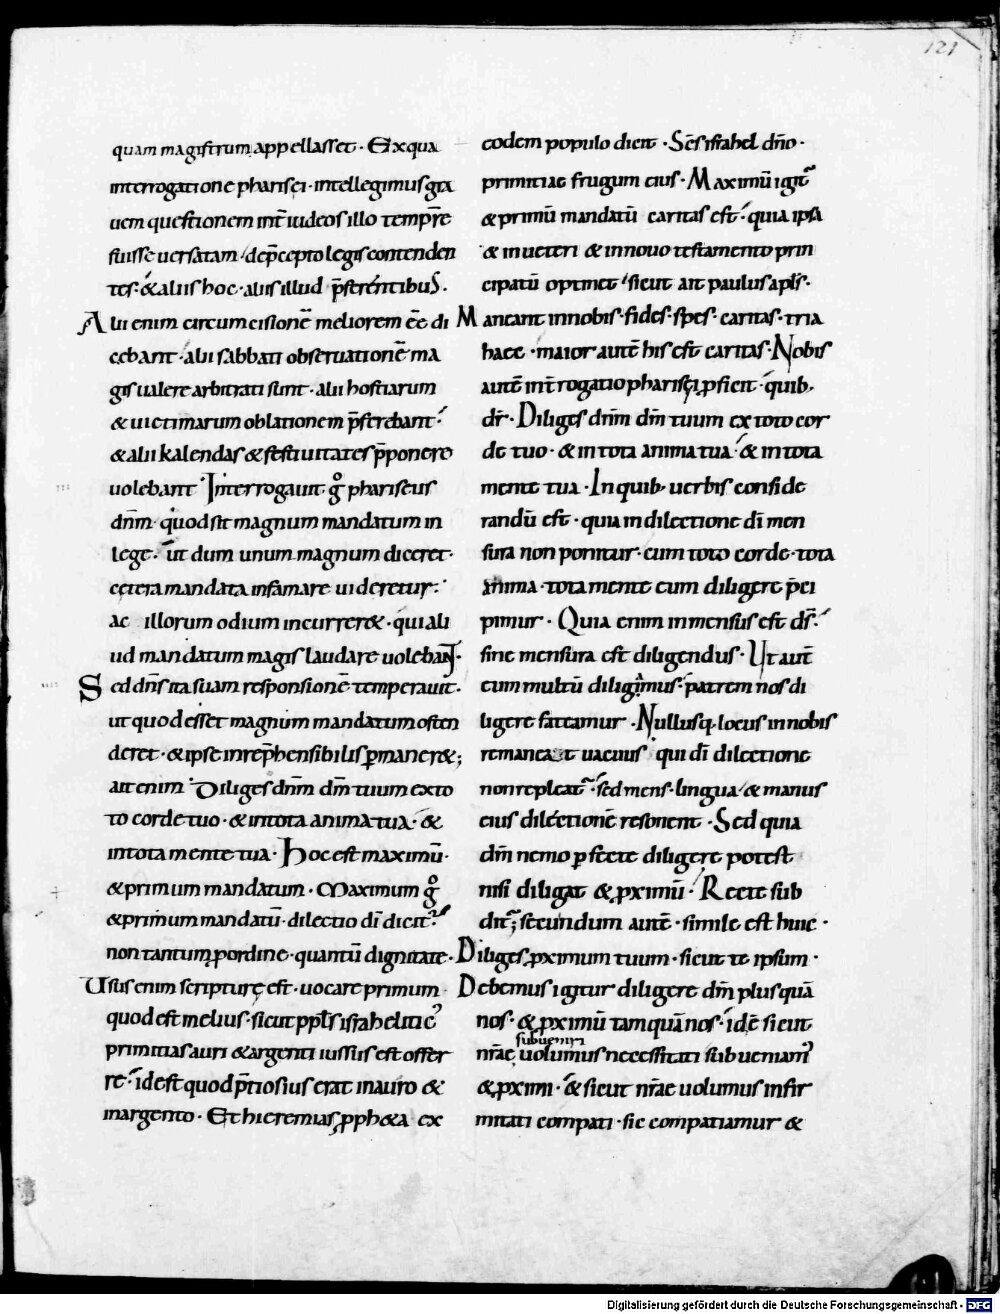 121
quam magistrum appellasset · Ex qua
interrogatione pharisęi · intellegimus gra
uem questionem int̄ iudeos illo temp̄re
fuisse uersatam · de p̄cepto legis contenden
tes · & aliis hoc · aliis illud p̄ferentibus.
Alii enim circumcisionē meliorem eē di
cebant · alii sabbati obseruationē ma
gis ualere arbitrati sunt · alii hostiarum
& uictimarum oblationem p̄ferebant ·
& alii kalendas & festiuitates p̄ponere
uolebant · Interrogauit g̊ phariseus
dn̄m · quod sit magnum mandatum in
lege · ut dum unum magnum diceret ·
cętera mandata infamare uideretur ·
ac illorum odium incurrer& · qui ali
ud mandatum magis laudare uolebaNT ·
Sed dn̄s ita suam responsionē temperauit ·
ut quod esset magnum mandatum osten
deret · & ipse inrep̄hensibilis ꝑmaner&;
ait enim · Diliges dn̄m dm̄ tuum ex to
to corde tuo · & in tota anima tua · &
in tota mente tua · Hoc est maximū ·
& primum mandatum · Maximum g̊
& primum mandatū · dilectio dī dicit᷑
non tantum ꝓ ordine · quantū dignitate ·
Usus enim scripturę est · uocare primum
quod est melius · sicut ppl̄s israhelitic᷒
primitias auri & argenti iussus est offer
re · id est quod p̄tiosius erat in auro &
in argento · Et hieremias ꝓph&a ex
eodem populo dicit · Sc̄s israhel dn̄o ·
primitiae frugum eius · Maximū igit᷑
& primū mandatū caritas est · quia ipsa
& in ueteri & in nouo testamento prin
cipatū optinet · sicut ait paulus apl̄s ·
Maneant in nobis · fides · spes · caritas · tria
haec · maior autē his est caritas · Nobis
autē int̄rogatio pharisęi ꝓficit · quib;
dr̄ · Diliges dn̄m dm̄ tuum ex toto cor
de tuo · & in tota anima tua · & in tota
mente tua · In quib; uerbis conside
randū est · quia in dilectione dī men
sura non ponitur · cum toto corde · tota
anima · tota mente eum diligere p̄ci
pimur · Quia enim inmensus est ds̄ ·
sine mensura est diligendus · Ut autē
eum multū diligimus · patrem nos di
ligere fateamur · Nullusq; locus in nobis
remaneat uacuus qui dī dilectione
non repleat᷑ · sed mens · lingua & manus
eius dilectionē resonent · Sed quia
dm̄ nemo ꝑfecte diligere potest
nisi diligat & ꝓximū · Recte sub
dit᷑; secundum autē · simile est huic ·
Diliges ꝓximum tuum · sicut te ipsum ·
Debemus igitur diligere dm̄ plus quā
nos · & ꝓximū tamquā nos · id ē sicut
subueniri
nr̄ae uolumus necessitati subueniam᷒
& ꝓximi · & sicut nr̄ae uolumus infir
mitati compati · sic compatiamur &
Digitalisierung gefördert durch die Deutsche Forschungsgemeinschaft - DFG